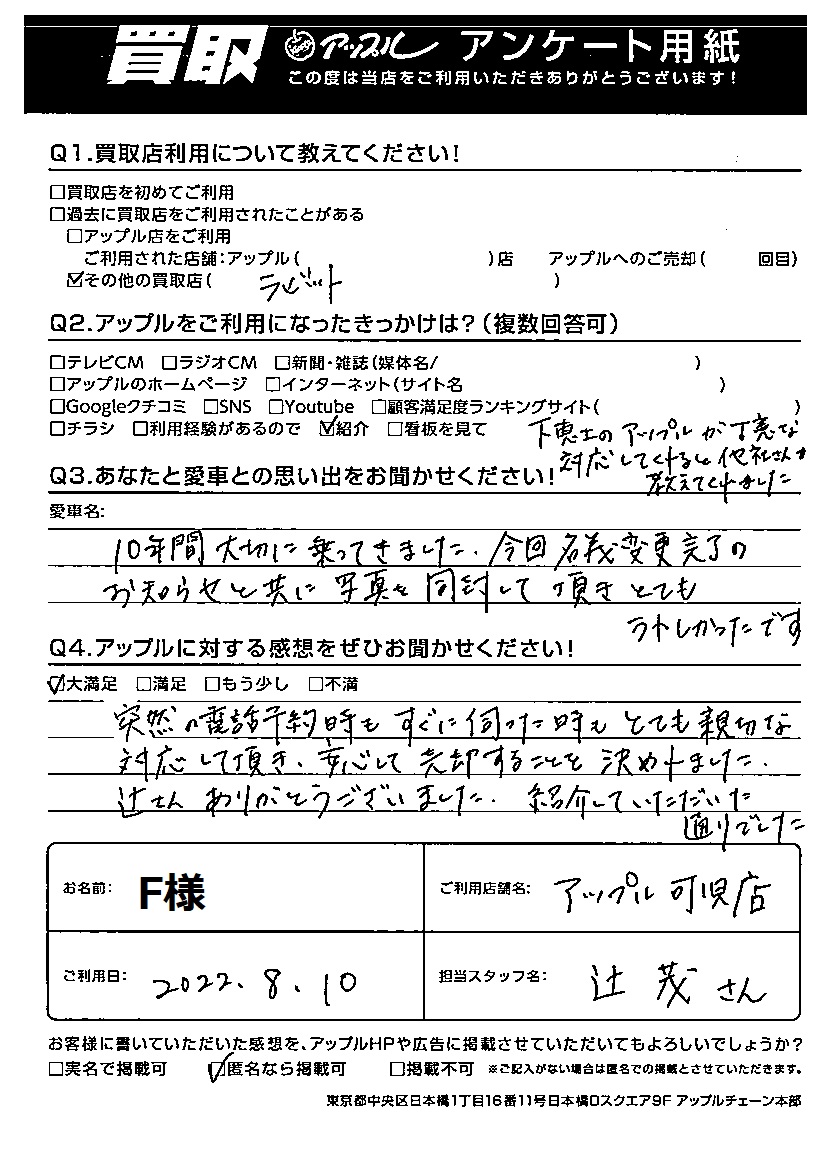 買取 アップル アンケート用紙
この度は当店をご利用いただきありがとうございます!
Q1.買取店利用について教えてください!
□買取店を初めてご利用
□過去に買取店をご利用されたことがある
□アップル店をご利用
ご利用された店舗:アップル( )店 アップルへのご売却( 回目)
☑その他の買取店( ラビット )
Q2.アップルをご利用になったきっかけは?(複数回答可)
□テレビCM □ラジオCM □新聞・雑誌(媒体名/ )
□アップルのホームページ □インターネット(サイト名 )
□Googleクチコミ □SNS □Youtube □顧客満足度ランキングサイト( )
□チラシ □利用経験があるので ☑紹介 □看板を見て
のアップルが丁寧な
対応してくれると他社さんが
教えてくれました
Q3.あなたと愛車との思い出をお聞かせください!
愛車名:
10年間大切に乗ってきました。今回名義変更完了の
お知らせと共に写真を同封して頂きとても
うれしかったです
Q4.アップルに対する感想をぜひお聞かせください!
☑大満足 □満足 □もう少し □不満
突然の電話予約時もすぐに伺った時もとても親切な
対応して頂き、安心して売却することを決めました。
辻さんありがとうございました。紹介していただいた
通りでした
お名前: F様
ご利用店舗名: アップル可児店
ご利用日: 2022.8.10
担当スタッフ名: 辻 茂さん
お客様に書いていただいた感想を、アップルHPや広告に掲載させていただいてもよろしいでしょうか?
□実名で掲載可 ☑匿名なら掲載可 □掲載不可 ※ご記入がない場合は匿名での掲載とさせていただきます。
東京都中央区日本橋1丁目16番11号日本橋Dスクエア9F アップルチェーン本部